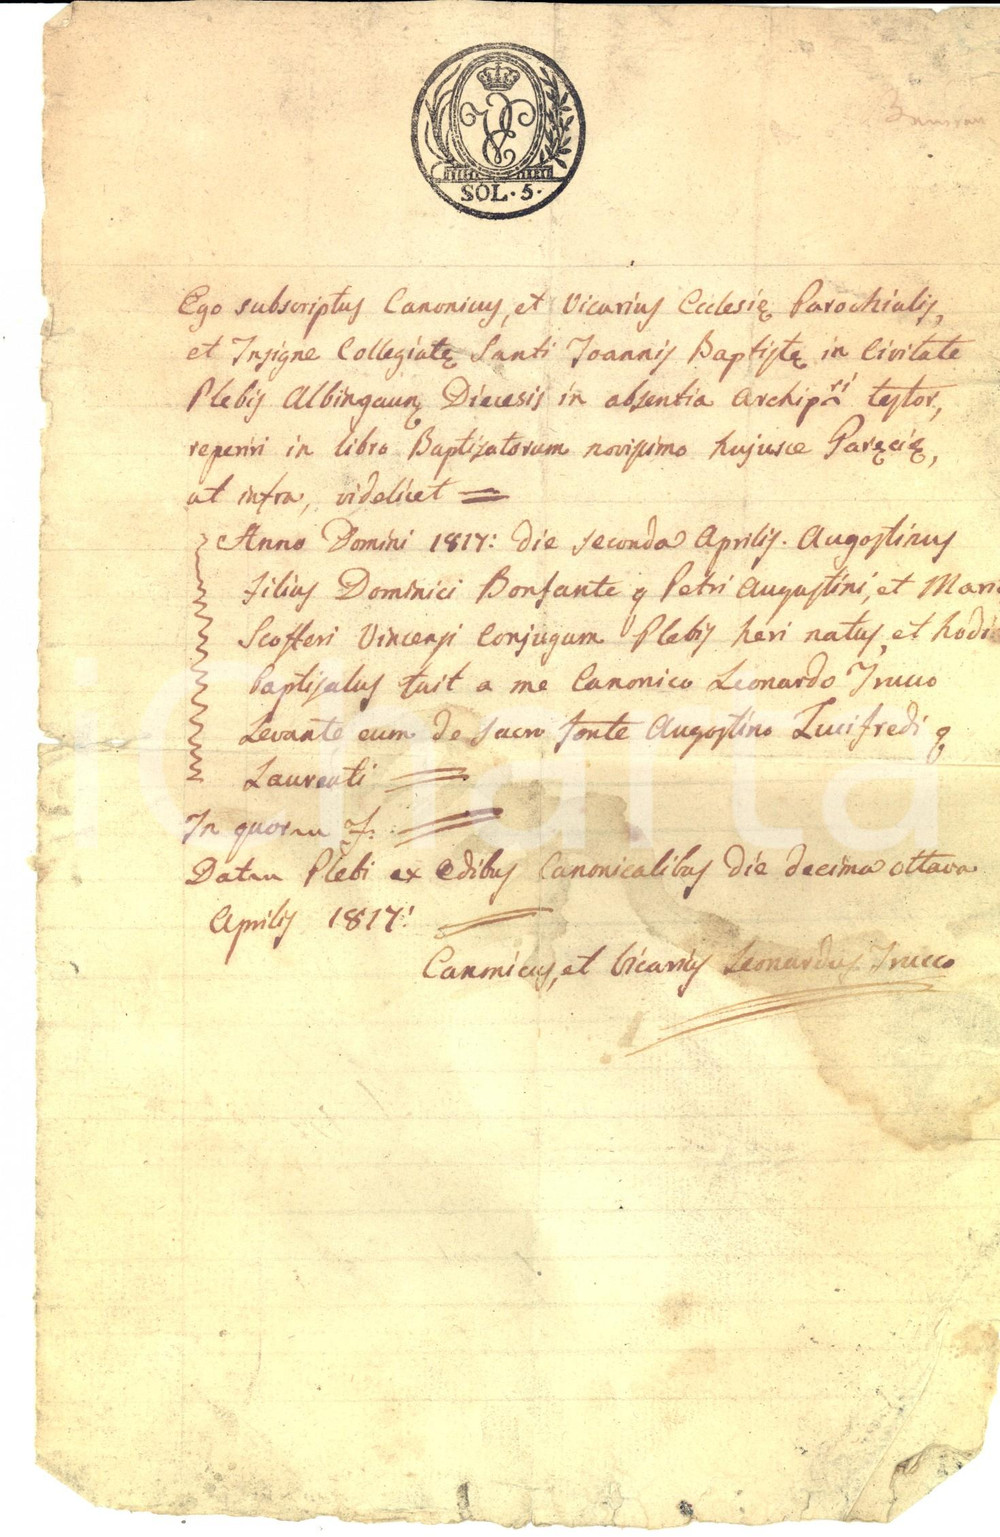 SOL. 5.
Ego subscriptus Canonicus, et Vicarius Ecclesię Parochialis,
et Insigne Collegiatę Santi Joannis Baptistę in Civitate
Plebis Albingaunę Diecesis in absentia Archipri testor,
reperiri in libro Baptizatorum novissimo hujusce Paręcię,
ut infra, videlicet =
Anno Domini 1817: die seconda Aprilis. Augostinus
filius Dominici Bonfante q Petri Augustini, et Maria
Scofferi Vincenzi Conjugum Plebis heri natus, et hodie
baptizatus fuit a me Canonico Leonardo Trucco
Levante eum de sacro fonte Augostino Lucifredi q
Laurenti =
In quorum f: =
Datum Plebi ex Edibus Canonicalibus die decima ottava
Aprilis 1817:
Canonicus, et Vicarius Leonardus Trucco
iCharta